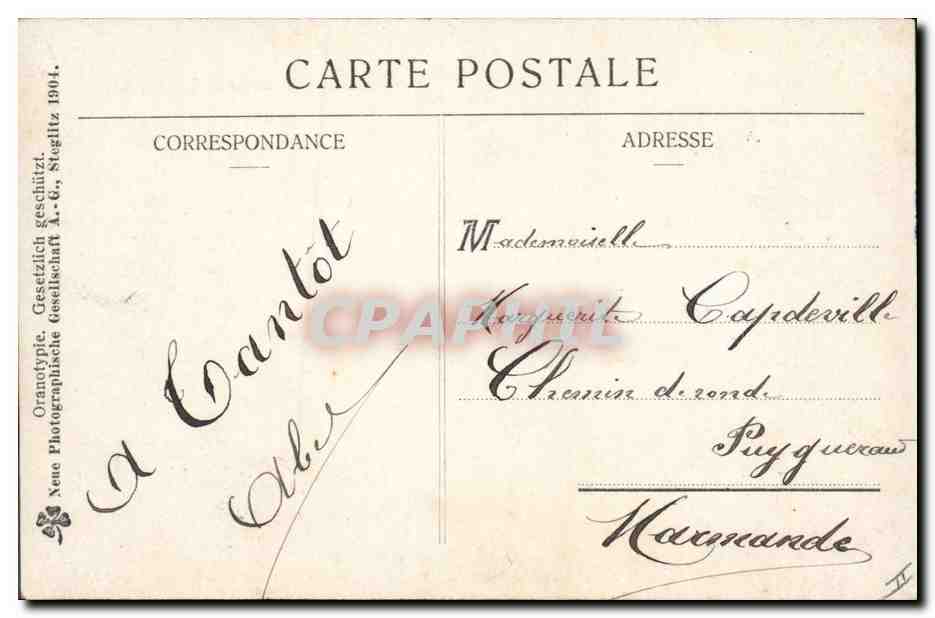 CARTE POSTALE
CORRESPONDANCE
ADRESSE
A Tantôt
Abel
Mademoiselle
Marguerite Capdeville
Chemin de ronde
Puygueraud
Marmande
II
Oranotypie. Gesetzlich geschützt.
Neue Photographische Gesellschaft A.-G., Steglitz 1904.
CPAPHIL